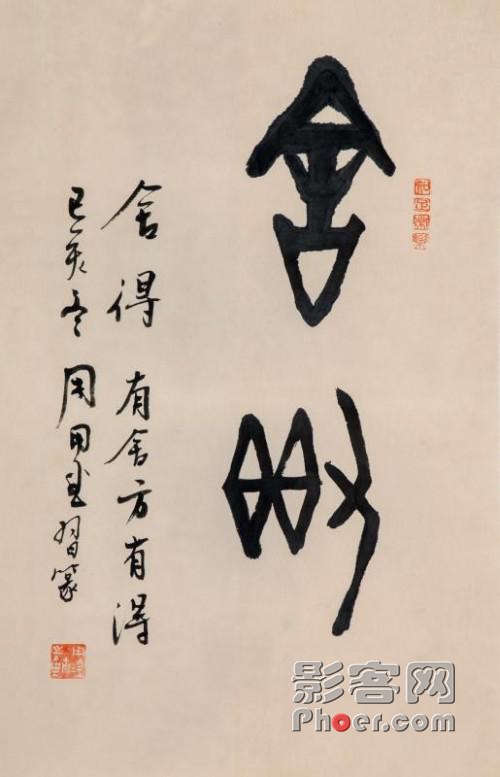 舍得
舍得 有舍方有得
己亥冬 周 習篆
影客网
Phoer.com